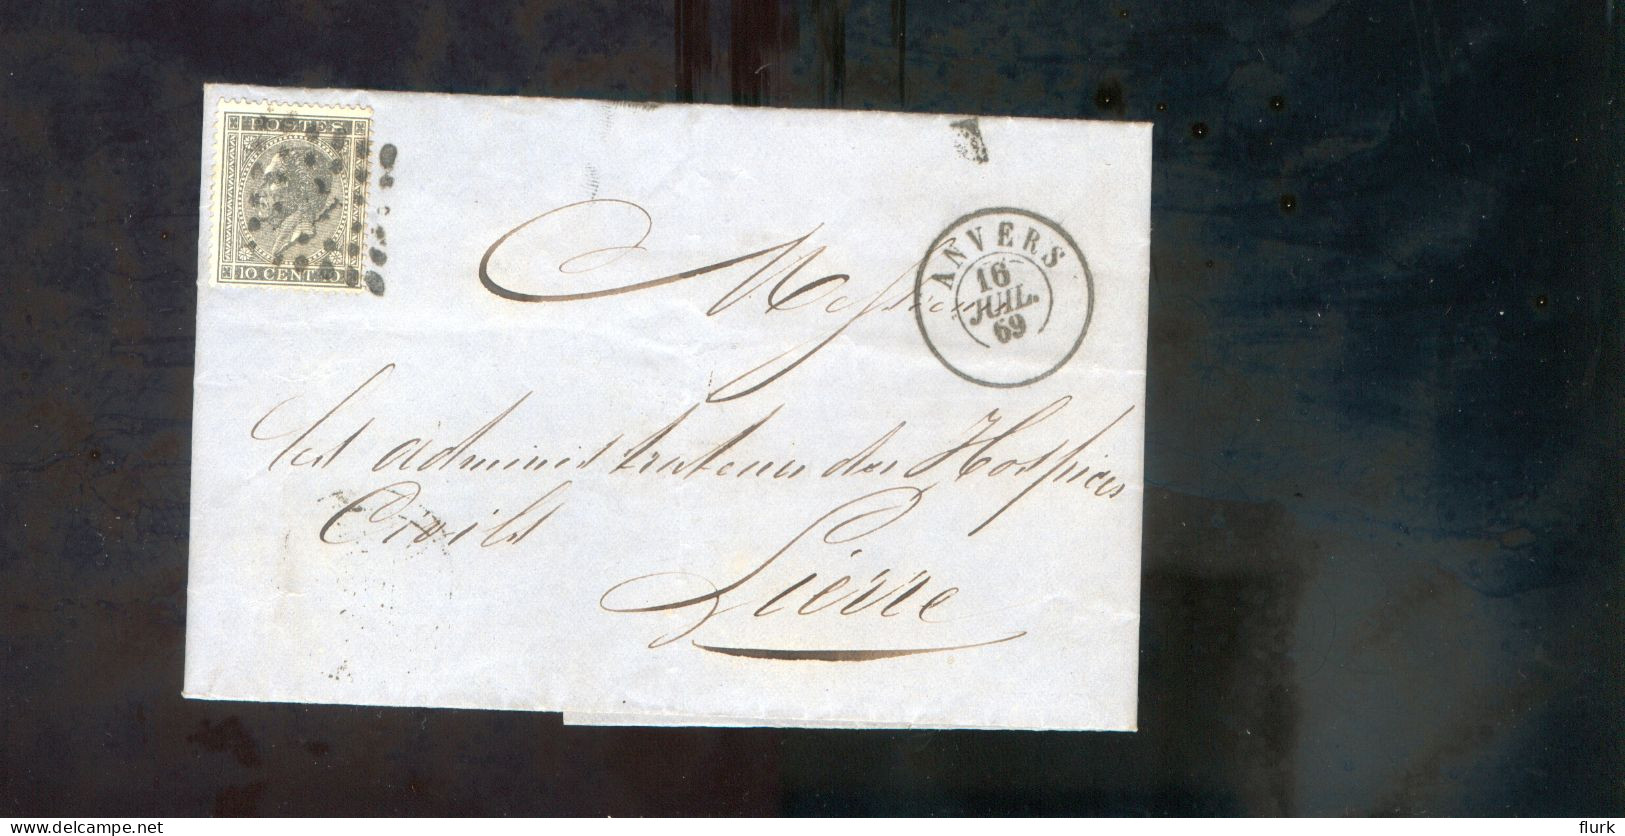 POSTES
10 CENT. 10
ANVERS
16
JUIL.
69
Messieurs
Les administrateurs des Hospices
Civils
Lierre
delcampe.net
flurk